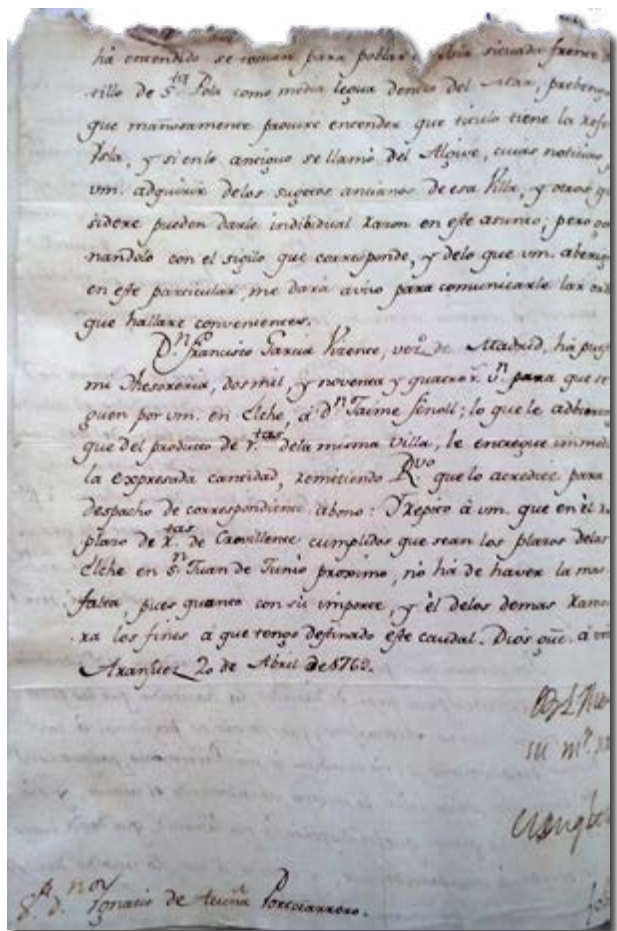 há entendido se toman para poblar Isla situada frente
tillo de S.ta Pola como media legua dentro del Mar,
que mañosamente procure entender que titulo tiene la refe
Isla, y si enlo antiguo se llamó del Algive, cuias noticias
vm. adquirir delos sugetos ancianos de esa Villa, y otros q
sidere pueden darle indibidual razon en este asunto; pero
nandolo con el sigilo que corresponde, y delo que vm.
en este particular, me dará aviso para comunicarle las
que hallare convenientes.
D.n Francisco Garcia Vizente, vez.o de Madrid, há
mi Thesoreria, dos mil, y noventa y quatro r.s v.n para que se
guen por vm. en Elche, á D.n Jaime Sinoll; lo que le
que del producto de r.tas dela misma Villa, le entregue
la expresada cantidad, remitiendo R.vo que lo acredite para
despacho de correspondiente abono: Y repito á vm. que en el
plazo de r.tas de Crevillente cumplidos que sean los plazos delas
Elche en S.n Juan de Junio proximo, nó há de haver la mas
falta pues quanto con su importe, y él delos demas ramo
ra los fines á que tengo destinado este caudal. Dios gũe. á vm
Aranjuez 20 de Abril de 1769.
su m.r
S.r D.n Ignacio de Acuña Portocarrero.